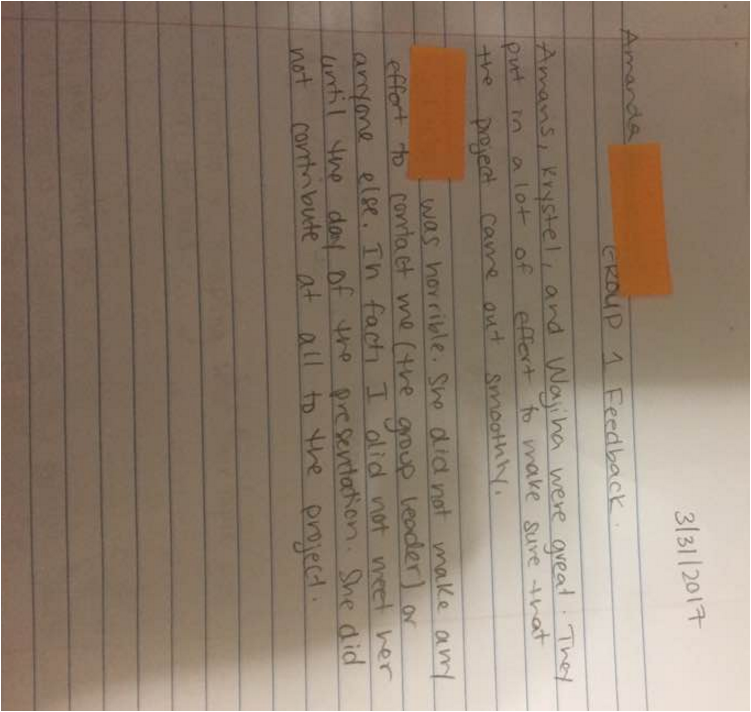 3/31/2017
Amanda
GROUP 1 Feedback.
Amans, Krystel, and Wajiha were great. They
put in a lot of effort to make sure that
the project came out smoothly.
was horrible. She did not make any
effort to contact me (the group leader) or
anyone else. In fact, I did not meet her
until the day of the presentation. She did
not contribute at all to the project.